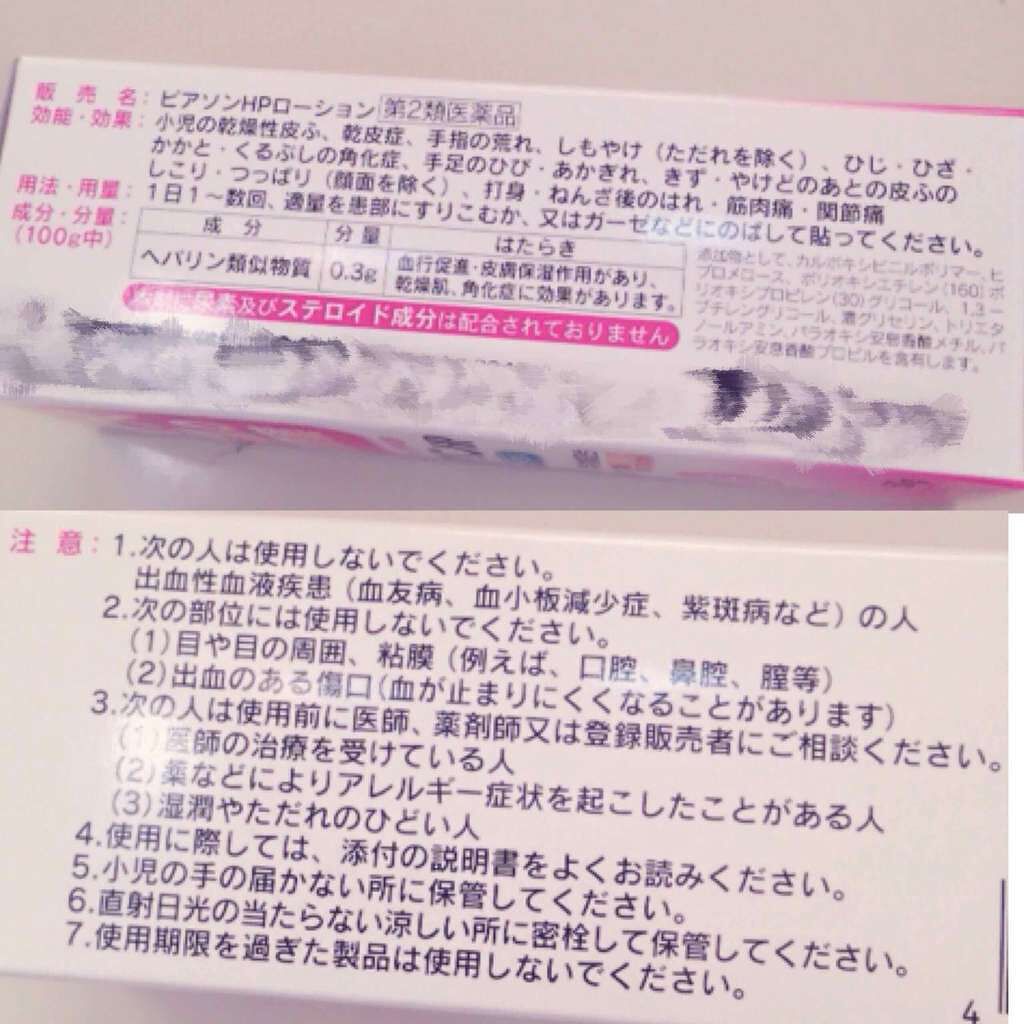 販売名：ピアソンHPローション 第2類医薬品
効能・効果：小児の乾燥性皮ふ、乾皮症、手指の荒れ、しもやけ（ただれを除く）、ひじ・ひざ・
かかと・くるぶしの角化症、手足のひび・あかぎれ、きず・やけどのあとの皮ふの
しこり・つっぱり（顔面を除く）、打身・ねんざ後のはれ・筋肉痛・関節痛
用法・用量：1日1〜数回、適量を患部にすりこむか、又はガーゼなどにのばして貼ってください。
成分・分量：
(100g中)
成分 分量 はたらき
ヘパリン類似物質 0.3g 血行促進・皮膚保湿作用があり、
乾燥肌、角化症に効果があります。
添加物として、カルボキシビニルポリマー、ヒ
プロメロース、ポリオキシエチレン(160)ポ
リオキシプロピレン(30)グリコール、1,3-
ブチレングリコール、濃グリセリン、トリエタ
ノールアミン、パラオキシ安息香酸メチル、パ
ラオキシ安息香酸プロピルを含有します。
尿素及びステロイド成分は配合されておりません
注意：1.次の人は使用しないでください。
出血性血液疾患（血友病、血小板減少症、紫斑病など）の人
2.次の部位には使用しないでください。
(1)目や目の周囲、粘膜（例えば、口腔、鼻腔、膣等）
(2)出血のある傷口（血が止まりにくくなることがあります）
3.次の人は使用前に医師、薬剤師又は登録販売者にご相談ください。
(1)医師の治療を受けている人
(2)薬などによりアレルギー症状を起こしたことがある人
(3)湿潤やただれのひどい人
4.使用に際しては、添付の説明書をよくお読みください。
5.小児の手の届かない所に保管してください。
6.直射日光の当たらない涼しい所に密栓して保管してください。
7.使用期限を過ぎた製品は使用しないでください。
4